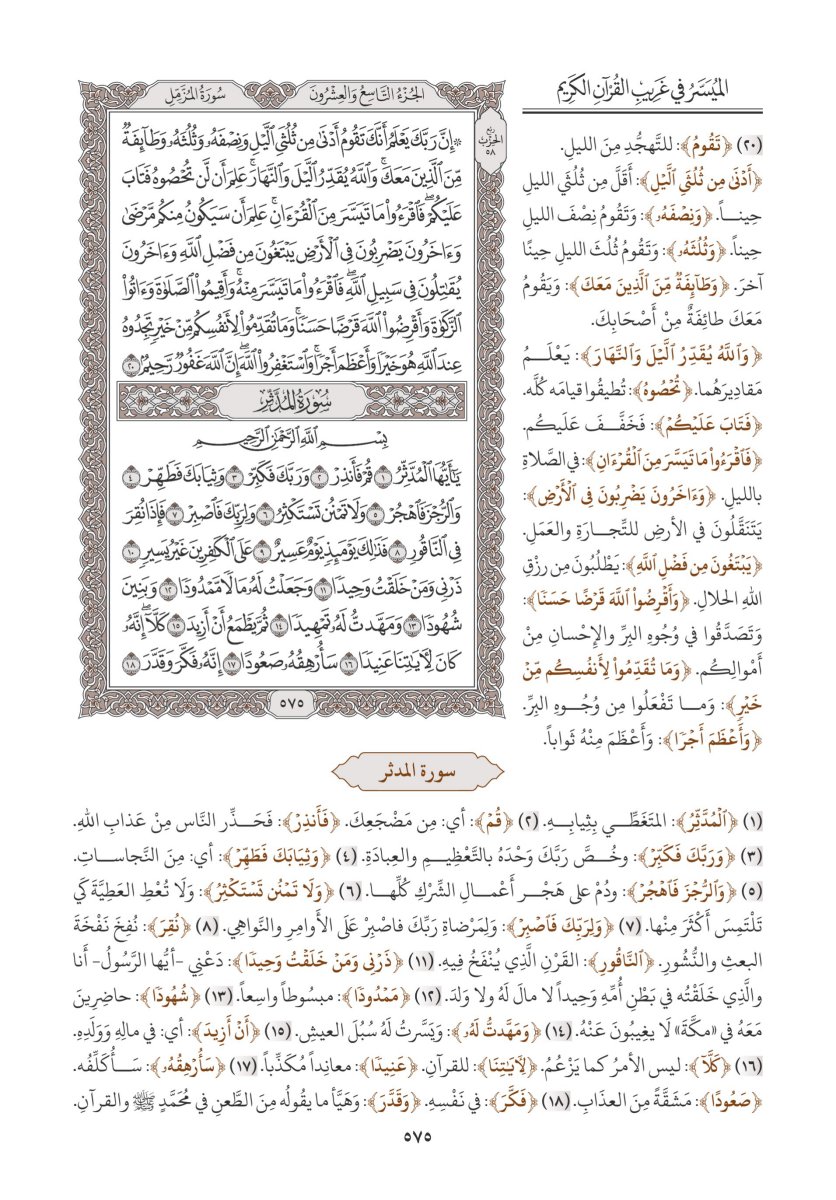 الميسر في غريب القرآن الكريم
سورة المزمل
الجزء التاسع والعشرون
ربع
الحزب
٥٨
۞ إِنَّ رَبَّكَ يَعْلَمُ أَنَّكَ تَقُومُ أَدْنَىٰ مِن ثُلُثَيِ ٱلَّيْلِ وَنِصْفَهُۥ وَثُلُثَهُۥ وَطَآئِفَةٌ
مِّنَ ٱلَّذِينَ مَعَكَۚ وَٱللَّهُ يُقَدِّرُ ٱلَّيْلَ وَٱلنَّهَارَۚ عَلِمَ أَن لَّن تُحْصُوهُ فَتَابَ
عَلَيْكُمْۖ فَٱقْرَءُوا۟ مَا تَيَسَّرَ مِنَ ٱلْقُرْءَانِۚ عَلِمَ أَن سَيَكُونُ مِنكُم مَّرْضَىٰ
وَءَاخَرُونَ يَضْرِبُونَ فِى ٱلْأَرْضِ يَبْتَغُونَ مِن فَضْلِ ٱللَّهِ وَءَاخَرُونَ
يُقَٰتِلُونَ فِى سَبِيلِ ٱللَّهِۖ فَٱقْرَءُوا۟ مَا تَيَسَّرَ مِنْهُۚ وَأَقِيمُوا۟ ٱلصَّلَوٰةَ وَءَاتُوا۟
ٱلزَّكَوٰةَ وَأَقْرِضُوا۟ ٱللَّهَ قَرْضًا حَسَنًاۚ وَمَا تُقَدِّمُوا۟ لِأَنفُسِكُم مِّنْ خَيْرٍ تَجِدُوهُ
عِندَ ٱللَّهِ هُوَ خَيْرًا وَأَعْظَمَ أَجْرًاۚ وَٱسْتَغْفِرُوا۟ ٱللَّهَۖ إِنَّ ٱللَّهَ غَفُورٌ رَّحِيمٌۢ ٢٠
سُورَةُ المُدَّثِّرِ
بِسْمِ ٱللَّهِ ٱلرَّحْمَٰنِ ٱلرَّحِيمِ
يَٰٓأَيُّهَا ٱلْمُدَّثِّرُ ١ قُمْ فَأَنذِرْ ٢ وَرَبَّكَ فَكَبِّرْ ٣ وَثِيَابَكَ فَطَهِّرْ ٤
وَٱلرُّجْزَ فَٱهْجُرْ ٥ وَلَا تَمْنُن تَسْتَكْثِرُ ٦ وَلِرَبِّكَ فَٱصْبِرْ ٧ فَإِذَا نُقِرَ
فِى ٱلنَّاقُورِ ٨ فَذَٰلِكَ يَوْمَئِذٍ يَوْمٌ عَسِيرٌ ٩ عَلَى ٱلْكَٰفِرِينَ غَيْرُ يَسِيرٍ ١٠
ذَرْنِى وَمَنْ خَلَقْتُ وَحِيدًا ١١ وَجَعَلْتُ لَهُۥ مَالًا مَّمْدُودًا ١٢ وَبَنِينَ
شُهُودًا ١٣ وَمَهَّدتُّ لَهُۥ تَمْهِيدًا ١٤ ثُمَّ يَطْمَعُ أَنْ أَزِيدَ ١٥ كَلَّآۖ إِنَّهُۥ
كَانَ لِءَايَٰتِنَا عَنِيدًا ١٦ سَأُرْهِقُهُۥ صَعُودًا ١٧ إِنَّهُۥ فَكَّرَ وَقَدَّرَ ١٨
٥٧٥
(٢٠) ﴿تَقُومُ﴾: للتَّهجُّدِ مِنَ الليلِ.
﴿أَدْنَىٰ مِن ثُلُثَيِ ٱلَّيْلِ﴾: أَقَلَّ مِن ثُلُثَيِ الليلِ
حِيناً. ﴿وَنِصْفَهُۥ﴾: وَتَقُومُ نِصْفَ الليلِ
حِيناً. ﴿وَثُلُثَهُۥ﴾: وَتَقُومُ ثُلُثَ الليلِ حِينًا
آخرَ. ﴿وَطَآئِفَةٌ مِّنَ ٱلَّذِينَ مَعَكَ﴾: وَيَقُومُ
مَعَكَ طائِفَةٌ مِنْ أَصْحَابِكَ.
﴿وَٱللَّهُ يُقَدِّرُ ٱلَّيْلَ وَٱلنَّهَارَ﴾: يَعْلَمُ
مَقادِيرَهُما. ﴿تُحْصُوهُ﴾: تُطيقُوا قيامَه كُلَّه.
﴿فَتَابَ عَلَيْكُمْ﴾: فَخَفَّفَ عَلَيكُم.
﴿فَٱقْرَءُوا۟ مَا تَيَسَّرَ مِنَ ٱلْقُرْءَانِ﴾: في الصَّلاةِ
بالليلِ. ﴿وَءَاخَرُونَ يَضْرِبُونَ فِى ٱلْأَرْضِ﴾:
يَتَنَقَّلُونَ في الأرضِ للتِّجارَةِ والعَمَلِ.
﴿يَبْتَغُونَ مِن فَضْلِ ٱللَّهِ﴾: يَطْلُبُونَ مِن رِزْقِ
اللهِ الحَلالِ. ﴿وَأَقْرِضُوا۟ ٱللَّهَ قَرْضًا حَسَنًا﴾:
وَتَصَدَّقُوا في وُجُوهِ البِرِّ والإِحْسانِ مِنْ
أَمْوالِكُم. ﴿وَمَا تُقَدِّمُوا۟ لِأَنفُسِكُم مِّنْ
خَيْرٍ﴾: وَمَا تَفْعَلُوا مِن وُجُوهِ البِرِّ.
﴿وَأَعْظَمَ أَجْرًا﴾: وَأَعْظَمَ مِنْهُ ثَواباً.
سورة المدثر
(١) ﴿ٱلْمُدَّثِّرُ﴾: المتَغَطِّي بِثِيابِهِ. (٢) ﴿قُمْ﴾: أي: مِن مَضْجَعِكَ. ﴿فَأَنذِرْ﴾: فَحَذِّرِ النَّاس مِنْ عَذابِ اللهِ.
(٣) ﴿وَرَبَّكَ فَكَبِّرْ﴾: وخُصَّ رَبَّكَ وَحْدَهُ بالتَّعْظِيمِ والعِبادَةِ. (٤) ﴿وَثِيَابَكَ فَطَهِّرْ﴾: أي: مِنَ النَّجاساتِ.
(٥) ﴿وَٱلرُّجْزَ فَٱهْجُرْ﴾: ودُمْ على هَجْرِ أَعْمالِ الشِّرْكِ كُلِّها. (٦) ﴿وَلَا تَمْنُن تَسْتَكْثِرُ﴾: وَلَا تُعْطِ العَطِيَّةَ كَي
تَلْتَمِسَ أَكْثَرَ مِنْها. (٧) ﴿وَلِرَبِّكَ فَٱصْبِرْ﴾: وَلِمَرْضاةِ رَبِّكَ فاصْبِرْ عَلَى الأَوامِرِ والنَّواهِي. (٨) ﴿نُقِرَ﴾: نُفِخَ نَفْخَةَ
البعثِ والنُّشُورِ. ﴿ٱلنَّاقُورِ﴾: القَرْنِ الَّذِي يُنْفَخُ فيهِ. (١١) ﴿ذَرْنِى وَمَنْ خَلَقْتُ وَحِيدًا﴾: دَعْنِي -أيُّها الرَّسُولُ- أَنا
والَّذِي خَلَقْتُه في بَطْنِ أُمِّهِ وَحِيداً لا مالَ لَهُ ولا وَلَدَ. (١٢) ﴿مَمْدُودًا﴾: مبسُوطاً واسِعاً. (١٣) ﴿شُهُودًا﴾: حاضِرِينَ
مَعَهُ في «مكَّةَ» لَا يَغِيبُونَ عَنْهُ. (١٤) ﴿وَمَهَّدتُّ لَهُۥ﴾: وَيَسَّرتُ لَهُ سُبُلَ العيشِ. (١٥) ﴿أَنْ أَزِيدَ﴾: أي: في مالِهِ وَوَلَدِهِ.
(١٦) ﴿كَلَّآ﴾: ليس الأمرُ كما يَزْعُمُ. ﴿لِءَايَٰتِنَا﴾: للقرآنِ. ﴿عَنِيدًا﴾: معانِداً مُكَذِّباً. (١٧) ﴿سَأُرْهِقُهُۥ﴾: سَأُكَلِّفُه.
﴿صَعُودًا﴾: مَشَقَّةً مِنَ العذَابِ. (١٨) ﴿فَكَّرَ﴾: في نَفْسِهِ. ﴿وَقَدَّرَ﴾: وَهَيَّأَ ما يقُولُه مِنَ الطَّعنِ في مُحَمَّدٍ ﷺ والقرآنِ.
٥٧٥